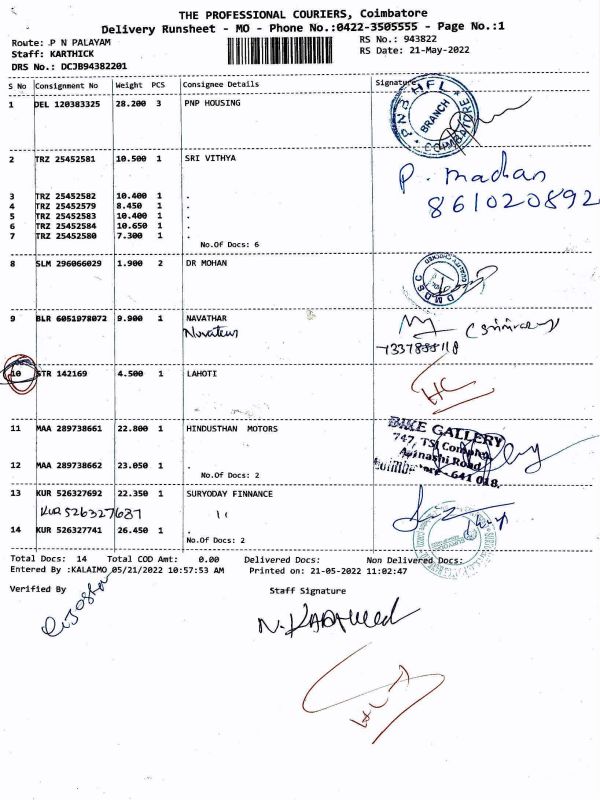 THE PROFESSIONAL COURIERS, Coimbatore
Delivery Runsheet - MO - Phone No.:0422-3505555 - Page No.:1
Route: .P N PALAYAM RS No.: 943822
Staff: KARTHICK RS Date: 21-May-2022
DRS No.: DCJB94382201
S No Consignment No Weight PCS Consignee Details Signature
1 DEL 120383325 28.200 3 PNP HOUSING
PNB HFL
BRANCH
COIMBATORE
2 TRZ 25452581 10.500 1 SRI VITHYA
P. madhan
861020892
3 TRZ 25452582 10.400 1 .
4 TRZ 25452579 8.450 1 .
5 TRZ 25452583 10.400 1 .
6 TRZ 25452584 10.650 1 .
7 TRZ 25452580 7.300 1 .
No.Of Docs: 6
8 SLM 296066029 1.900 2 DR MOHAN
D M D S C
9 BLR 6051978072 9.900 1 NAVATHAR
10 STR 142169 4.500 1 LAHOTI
HC
11 MAA 289738661 22.800 1 HINDUSTHAN MOTORS
BIKE GALLERY
747, TSI Complex,
Avinashi Road,
Coimbatore - 641 018.
12 MAA 289738662 23.050 1 .
No.Of Docs: 2
13 KUR 526327692 22.350 1 SURYODAY FINNANCE
KUR 526327687 11
14 KUR 526327741 26.450 1 .
No.Of Docs: 2
Total Docs: 14 Total COD Amt: 0.00 Delivered Docs: Non Delivered Docs:
Entered By :KALAIMO 05/21/2022 10:57:53 AM Printed on: 21-05-2022 11:02:47
Verified By Staff Signature